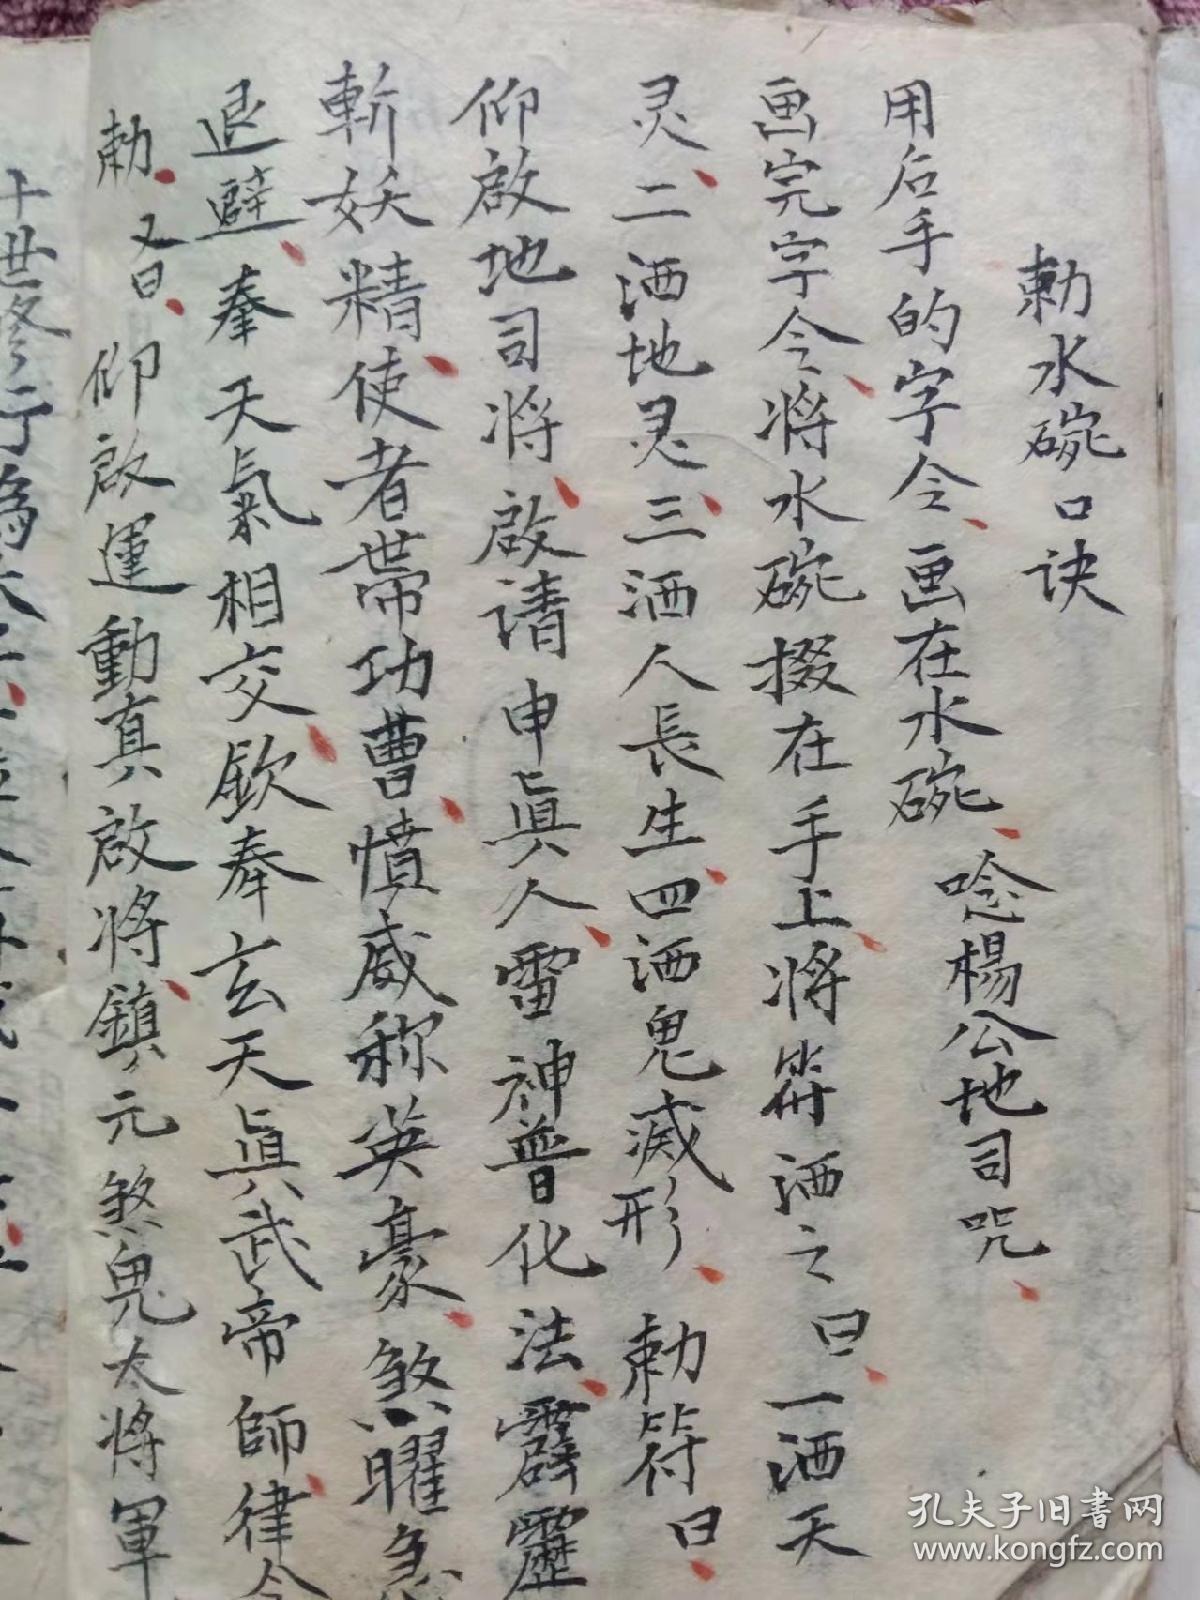 勅水碗口诀
用后手的字令、画在水碗、唸楊公地司咒、
画完字令、将水碗掇在手上、将符洒之曰、一洒天
灵、二洒地灵、三洒人長生、四洒鬼滅形、勅符曰、
仰啟地司将、啟请申真人、雷神普化法、霹靂
斬妖精、使者帶功曹、憤威称英豪、煞曜急
退避、奉天氣相交、欽奉玄天真武帝師、律令
勅、又曰、仰啟運動真啟将、鎮元煞鬼太将軍
十世修行為
孔夫子旧书网
www.kongfz.com